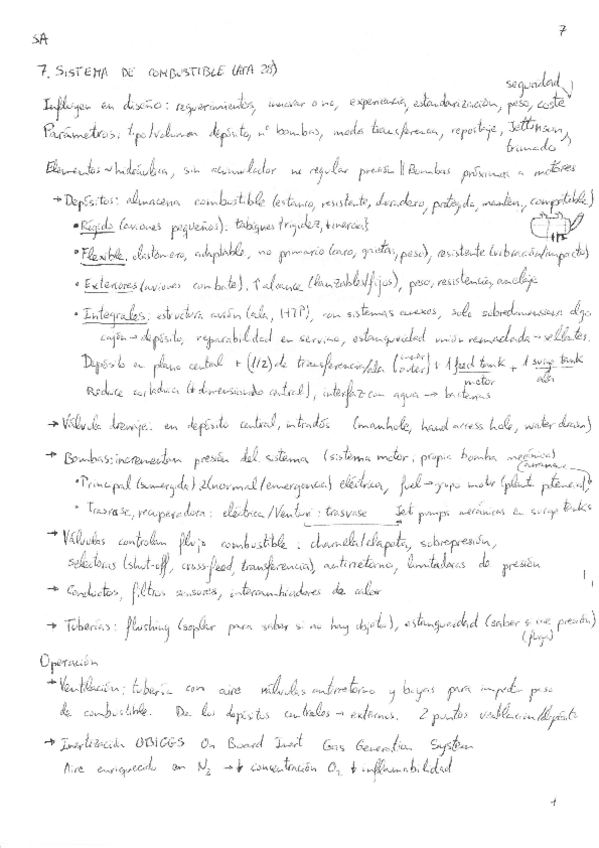 SA
7
7. SISTEMA DE COMBUSTIBLE (ATA 28)
seguridad
Influyen en diseño: requerimientos, innovar o no, experiencia, estandarización, peso, coste
Parámetros: tipo/volumen depósito, nº bombas, modo transferencia, repostaje, Jettinson,
trimado
Elementos ~ hidráulica, sin acumulador no regular presión || Bombas próximas a motores
→ Depósitos: almacena combustible (estanco, resistente, duradero, protegida, manten., compatible)
• Rígido (aviones pequeños): tabiques {rigidez, ↓inercia}
• Flexible. elastómero, adaptable, no primario (caro, grietas, peso), resistente (vibración/impacto)
• Exteriores (aviones combate). ↑ alcance (lanzables/fijos), peso, resistencia, anclaje
• Integrales: estructura avión (ala, HTP), con sistemas anexos, solo sobredimensiona algo
cajón → depósito, reparabilidad en servicio, estanqueidad unión remachada → sellantes.
Depósito en plano central + (1/2) de transferencia/ala (inner outer) + 1 feed tank + 1 surge tank
motor ala
Reduce (+ dimensionado central), interfaz con agua → bacterias
→ Válvula drenaje: en depósito central, intradós (manhole, hand access hole, water drain)
→ Bombas: incrementan presión del sistema (sistema motor: propia bomba mecánica)
(arranque
• Principal (sumergida) 2 (normal/emergencia) eléctrica, fuel → grupo motor (planta potencia)
• Trasvase, recuperadora: eléctrica/Venturi: trasvase Jet pumps mecánicas en surge tanks
→ Válvulas controlan flujo combustible: charnela/clapeta, sobrepresión,
selectoras (shut-off, cross-feed, transferencia), antirretorno, limitadoras de presión
→ Conductos, filtros sensores, intercambiadores de calor
→ Tuberías: flushing (soplar para saber si no hay objeto), estanqueidad (saber si presión)
(fuga)
Operación
→ Ventilación: tubería con aire válvulas antirretorno y boyas para impedir paso
de combustible. De los depósitos centrales → externos. 2 puntos ventilación/depósito
→ Inertización OBIGGS On Board Inert Gas Generation System
Aire enriquecido en N₂ → ↓ concentración O₂ ↓ inflamabilidad
1